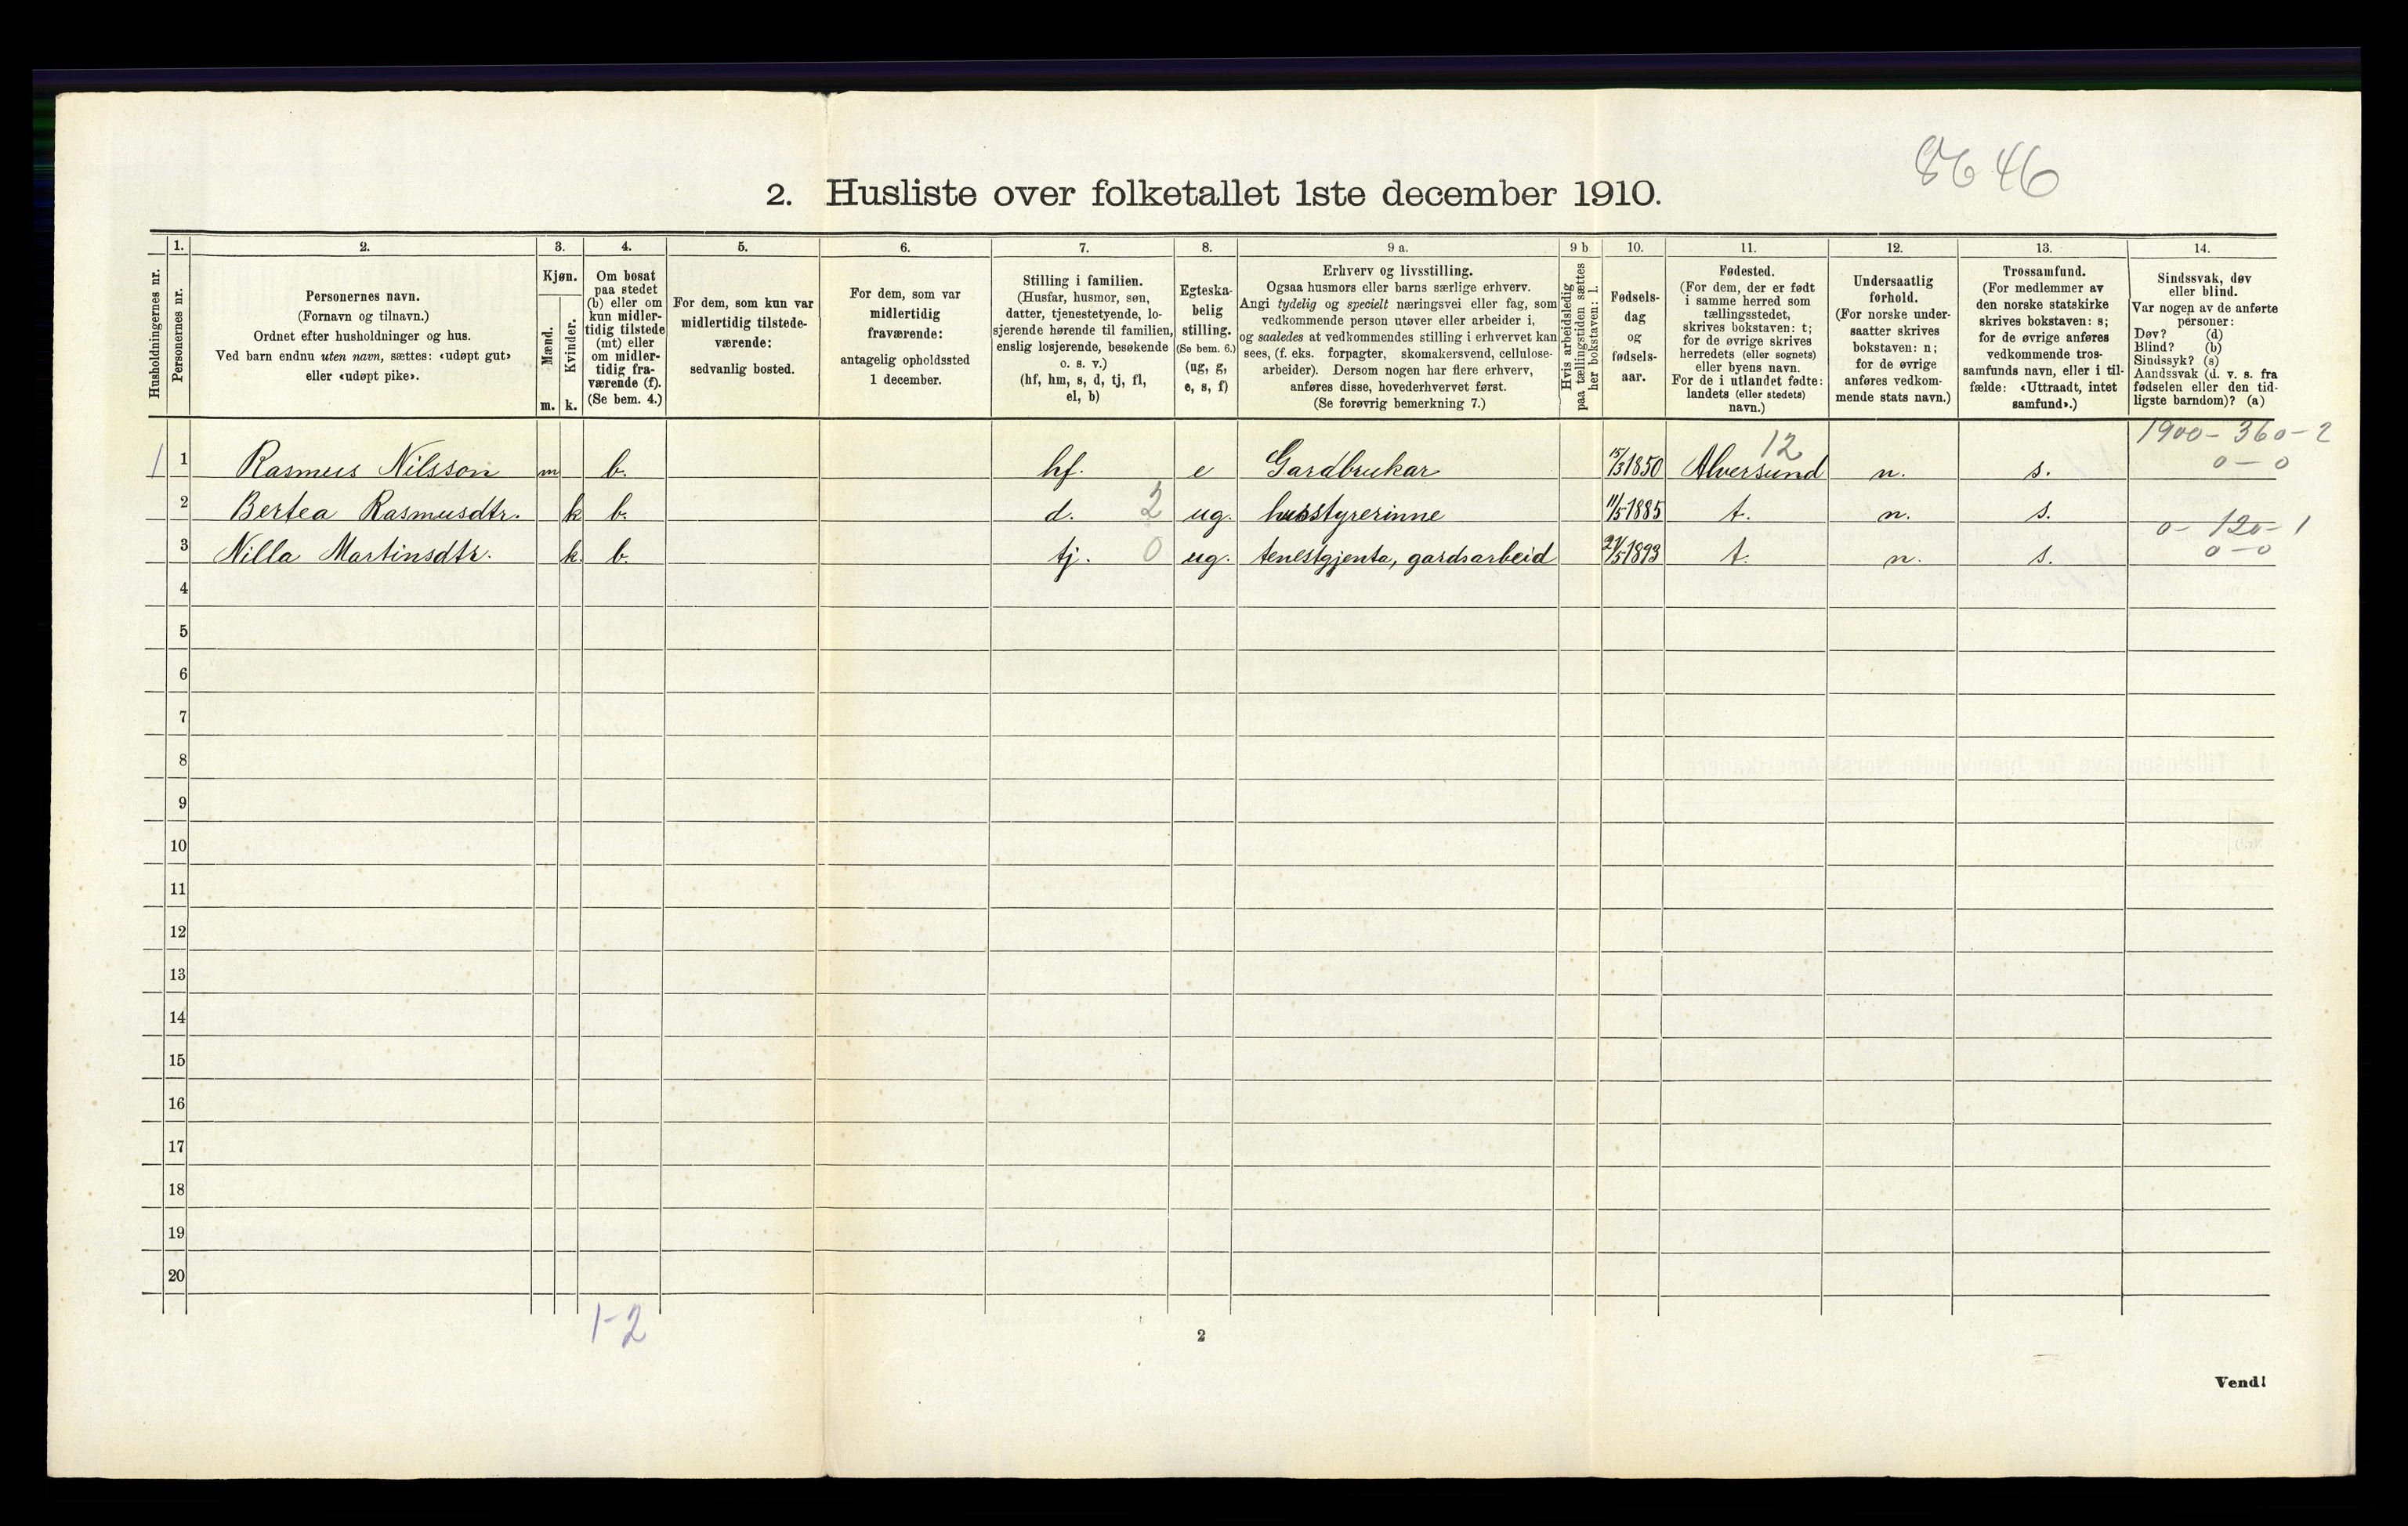 8646
2. Husliste over folketallet 1ste december 1910.
Husholdningernes nr.
1. Personernes nr.
2. Personernes navn.
(Fornavn og tilnavn.)
Ordnet efter husholdninger og hus.
Ved barn endnu uten navn, sættes: «udøpt gut»
eller «udøpt pike».
3. Kjøn.
Mænd. m.
Kvinder. k.
4. Om bosat
paa stedet
(b) eller om
kun midler-
tidig tilstede
(mt) eller
om midler-
tidig fra-
værende (f).
(Se bem. 4.)
5. For dem, som kun var
midlertidig tilstede-
værende:
sedvanlig bosted.
6. For dem, som var
midlertidig
fraværende:
antagelig opholdssted
1 december.
7. Stilling i familien.
(Husfar, husmor, søn,
datter, tjenestetyende, lo-
sjerende hørende til familien,
enslig losjerende, besøkende
o. s. v.)
(hf, hm, s, d, tj, fl,
el, b)
8. Egteska-
belig
stilling.
(Se bem. 6.)
(ug, g,
e, s, f)
9 a. Erhverv og livsstilling.
Ogsaa husmors eller barns særlige erhverv.
Angi tydelig og specielt næringsvei eller fag, som
vedkommende person utøver eller arbeider i,
og saaledes at vedkommendes stilling i erhvervet kan
sees, (f. eks. forpagter, skomakersvend, cellulose-
arbeider). Dersom nogen har flere erhverv,
anføres disse, hovederhvervet først.
(Se forøvrig bemerkning 7.)
9 b Hvis arbeidsledig
paa tællingstiden sættes
her bokstaven: l.
10. Fødsels-
dag
og
fødsels-
aar.
11. Fødested.
(For dem, der er født
i samme herred som
tællingsstedet,
skrives bokstaven: t;
for de øvrige skrives
herredets (eller sognets)
eller byens navn.
For de i utlandet fødte:
landets (eller stedets)
navn.)
12. Undersaatlig
forhold.
(For norske under-
saatter skrives
bokstaven: n;
for de øvrige
anføres vedkom-
mende stats navn.)
13. Trossamfund.
(For medlemmer av
den norske statskirke
skrives bokstaven: s;
for de øvrige anføres
vedkommende tros-
samfunds navn, eller i til-
fælde: «Uttraadt, intet
samfund».)
14. Sindssvak, døv
eller blind.
Var nogen av de anførte
personer:
Døv? (d)
Blind? (b)
Sindssyk? (s)
Aandssvak (d. v. s. fra
fødselen eller den tid-
ligste barndom)? (a)
12 1900 - 360 - 2
1 1 Rasmus Nilsson m b. hf. e Gardbrukar 15/3 1850 Alversund n. s. 0 - 0
2 Bertea Rasmusdtr. k b. d. 2 ug. husstyrerinne 11/5 1885 t. n. s.
0 - 120 - 1
3 Nilla Martinsdtr. k. b. tj. 0 ug. tenestgjenta, gardsarbeid 21/5 1893 t. n. s. 0 - 0
4
5
6
7
8
9
10
11
12
13
14
15
16
17
18
19
20
1-2
2
Vend!